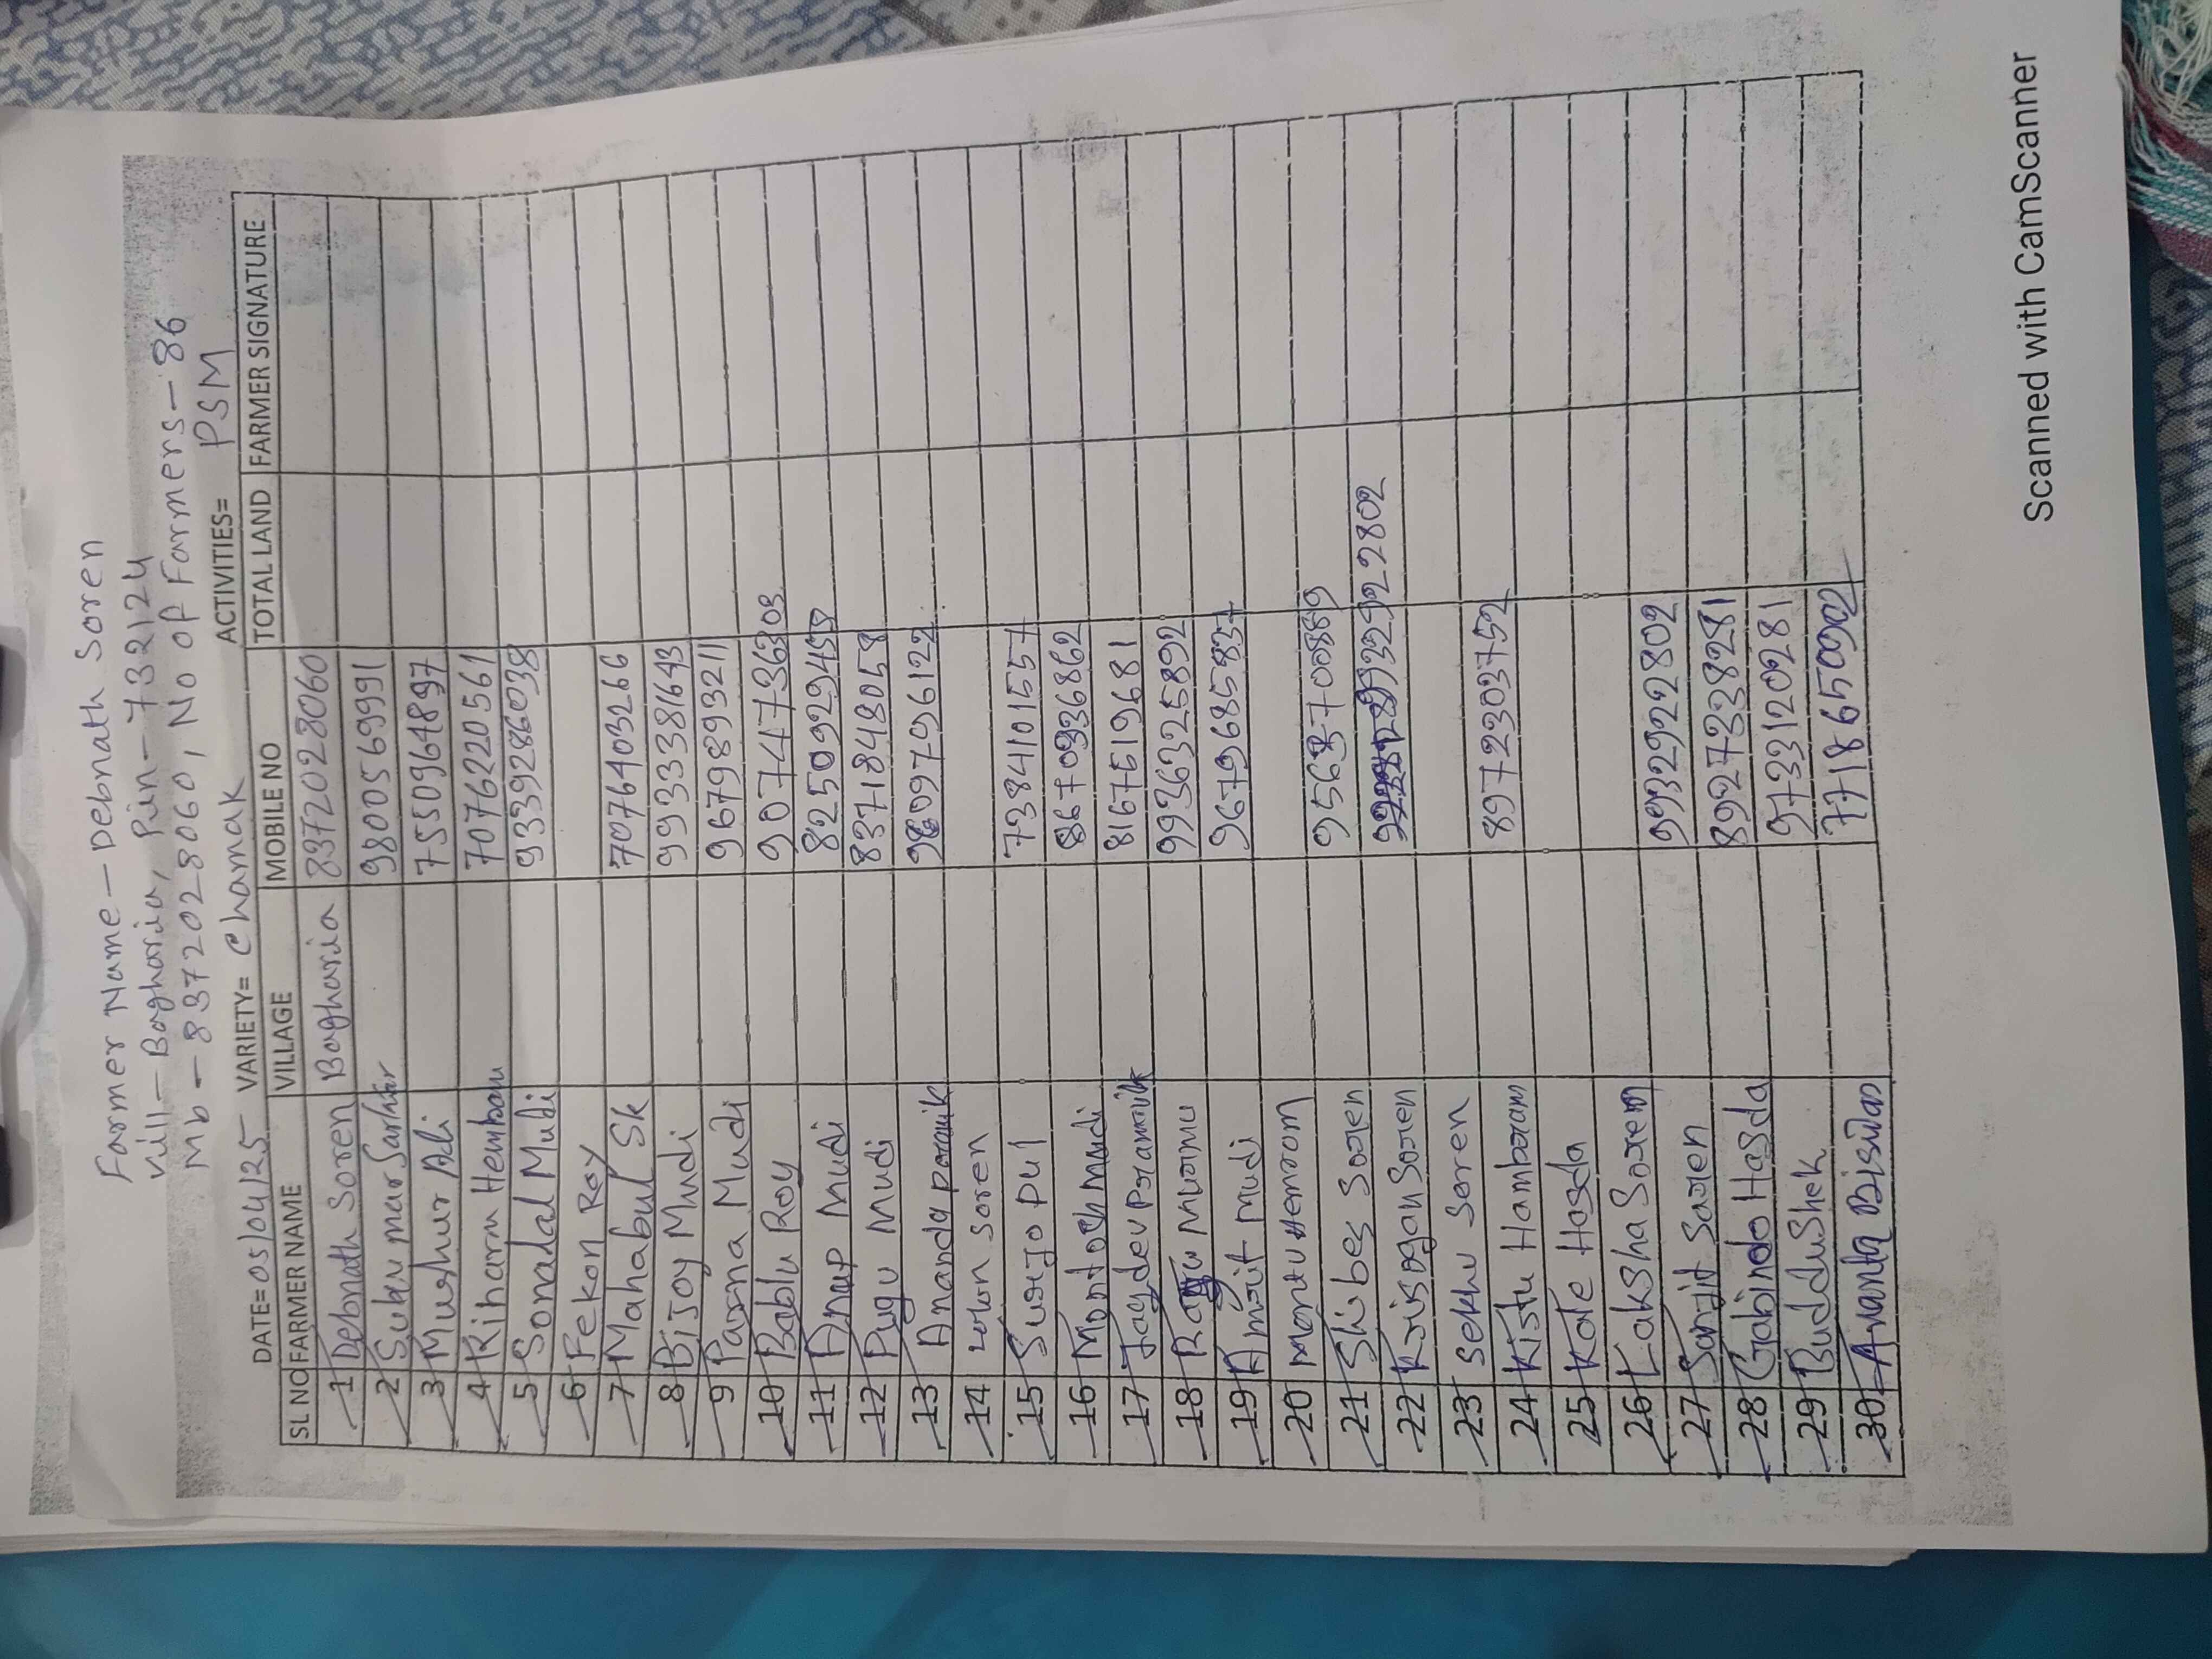 Farmer Name - Debnath Soren
Vill - Bagharia, Pin - 732124
Mb - 8372028060, No of Farmers - 86
DATE= 05/04/25 VARIETY= Chamak ACTIVITIES= PSM
SL NO FARMER NAME VILLAGE MOBILE NO TOTAL LAND FARMER SIGNATURE
1 Debnath Soren Bagharia 8372028060
2 Sukumar Sarkar 9800569991
3 Mushur Ali 7550964897
4 Kiharam Hembram 7076220561
5 Sonadal Mudi 9339286038
6 Fekon Roy
7 Mahabul Sk 7076403266
8 Bijoy Mudi 9933381643
9 Parma Mudi 9679893211
10 Bablu Roy 9074736303
11 Anup Mudi
12 Pugu Mudi 8371848058
13 Ananda paramik 9609796122
14 soren
15 Surjo pul 7384101557
16 Montosh mudi 8670936862
17 Jaydev Pramanik 8167619681
18 Murmu 9936325892
19 Amrit Mudi 9679685837
20 Montu Hemrom
21 Shibes Soren
22 Krisogan Soren 9932922802
23 Sekhu Soren
24 Kistu Hambaram 8972303752
25 Kate Hasda
26 Laksha Soren
27 Sanjit Saren 9932922802
28 Gabindo Hasda 8927338281
29 Buddu Shek 9733120281
30 Ananta Biswas 7718650902
Scanned with CamScanner